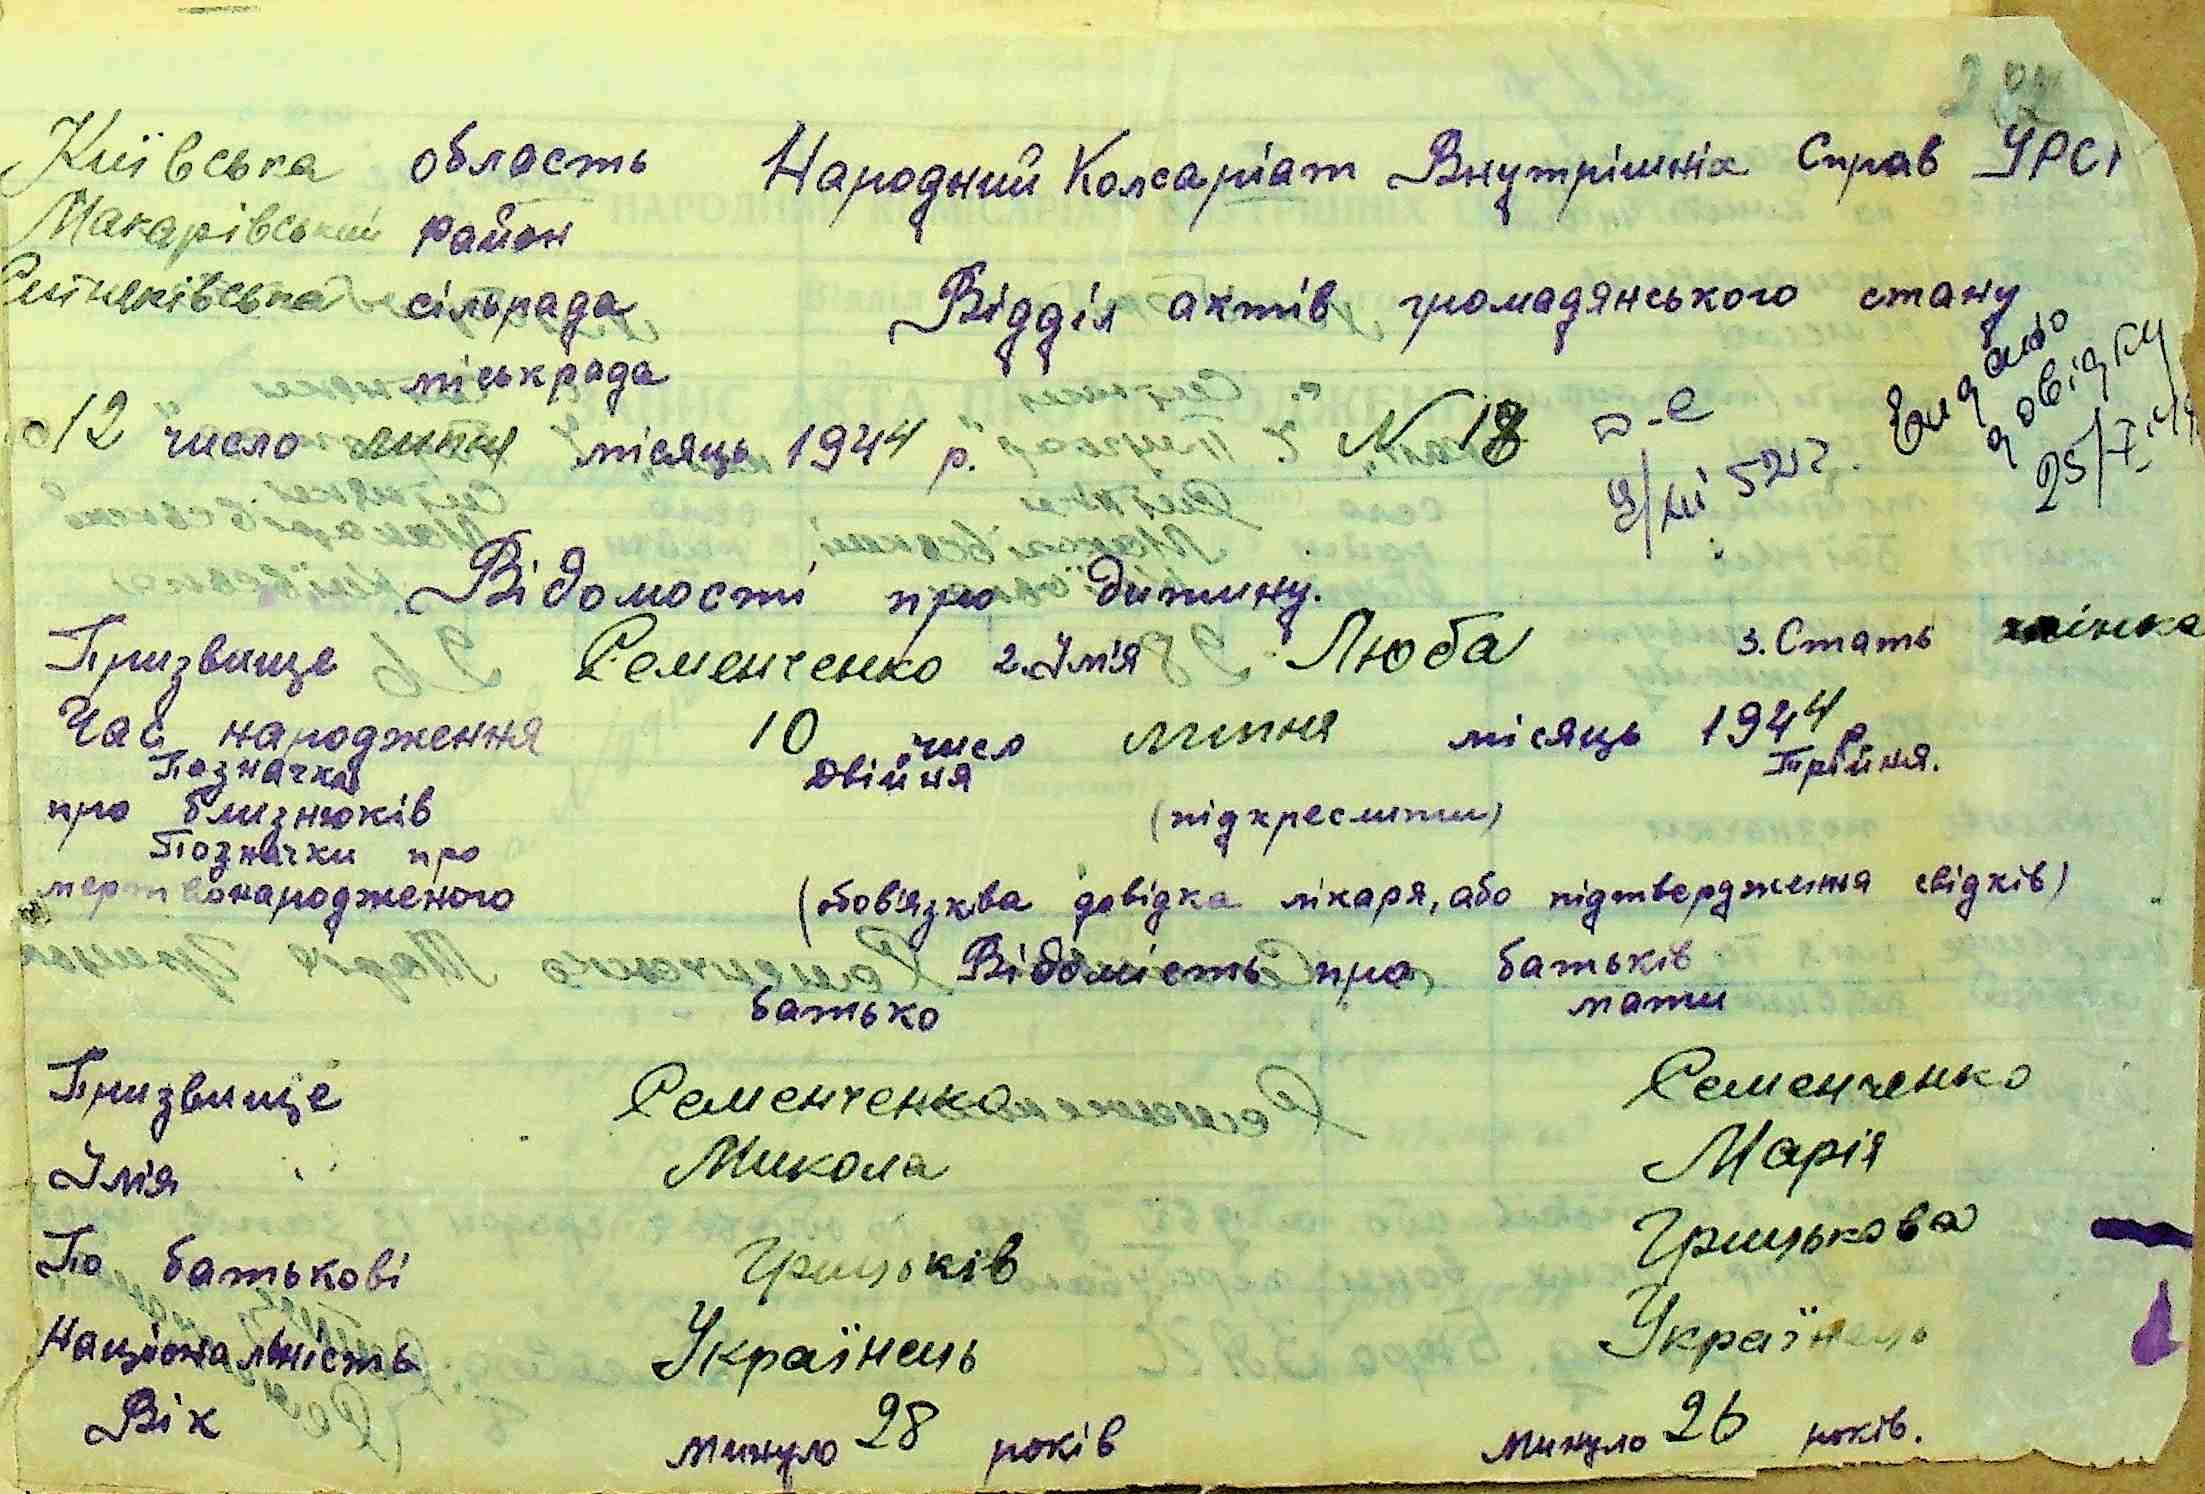 Київська область Народний Комсаріат Внутрішніх Справ УРСР
Макарівський район
Ситняківська сільрада Відділ актів громадянського стану
міськрада
12 число липня місяць 1944 р. № 18
Видано
довідку
Відомості про дитину.
Призвище Семенченко 2. Імʼя Люба 3. Стать жінка
Час народження 10 число липня місяць 1944 р
Позначка Двійня Трійня.
про близнюків (підкреслити)
Позначки про
мертвонародженого (обовʼязкова довідка лікаря, або підтвердження свідків)
Відомість про батьків
батько мати
Призвище Семенченко Семенченко
Імʼя Микола Марія
По батькові Грицьків Грицькова
Національність Українець Українець
Вік минуло 28 років минуло 26 років.